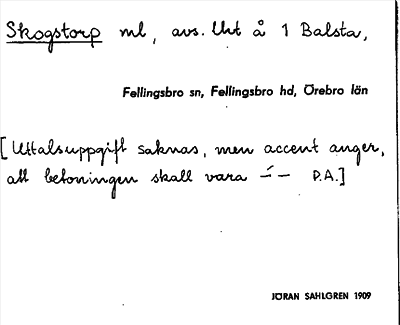 Skogstorp ml, avs. Urt å 1 Balsta,
Fellingsbro sn, Fellingsbro hd, Örebro län
[Uttalsuppgift saknas, men accent anger,
att betoningen skall vara –´– P.A.]
JÖRAN SAHLGREN 1909